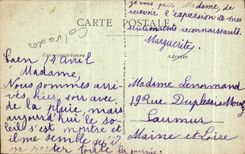 je vous prie Madame, de
recevoir l'expression de mes
sentiments reconnaissants.
Marguerite
CARTE POSTALE
Caen 14 Avril
Madame,
Nous sommes arri-
vés hier soir avec
de la pluie, mais
aujourd'hui le so-
leil s'est montré et
il me semble qu'il
va rester toute la
Madame Lenormand
19 Rue Duplessis-Mornay
Saumur
Maine et Loire